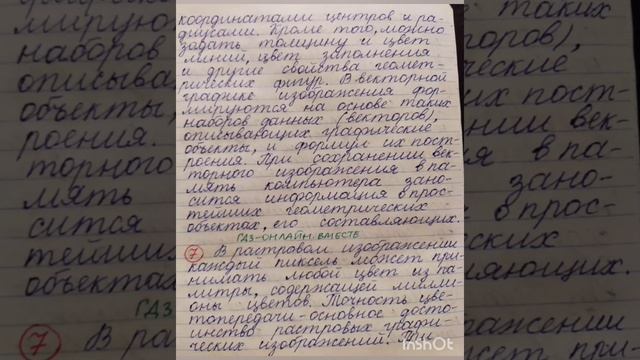 координатами центров и ра-
диусами. Кроме того, можно
задать толщину и цвет
линии, цвет заполнения
и другие свойства геомет-
рических фигур. В векторной
графике изображения фор-
мируются на основе таких
наборов данных (векторов),
описывающих графические
объекты, и формул их пост-
роения. При сохранении век-
торного изображения в па-
мять компьютера зано-
сится информация о прос-
тейших геометрических
объектах, его составляющих.
ГДЗ-ОНЛАЙН ВМЕСТЕ
7 В растровом изображении
каждый пиксель может при-
нимать любой цвет из па-
литры, содержащей милли-
оны цветов. Точность цве-
топередачи - основное досто-
инство растровых графи-
ческих изображений. При
InShot